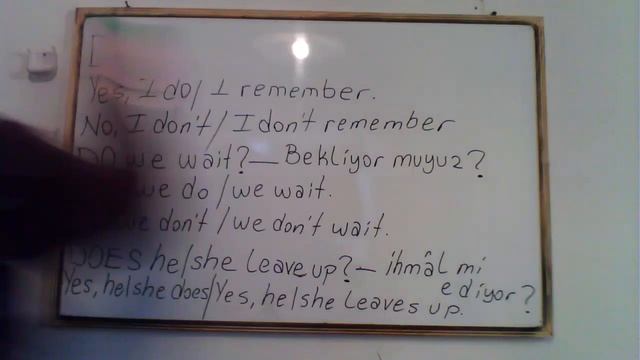 Yes, I do/ I remember.
No, I don't/ I don't remember
DO we wait?— Bekliyor muyuz?
we do/we wait.
we don't/we don't wait.
DOES he/she Leave up?— ihmâl mi ediyor?
Yes, he/she does/Yes, he/she Leaves up.